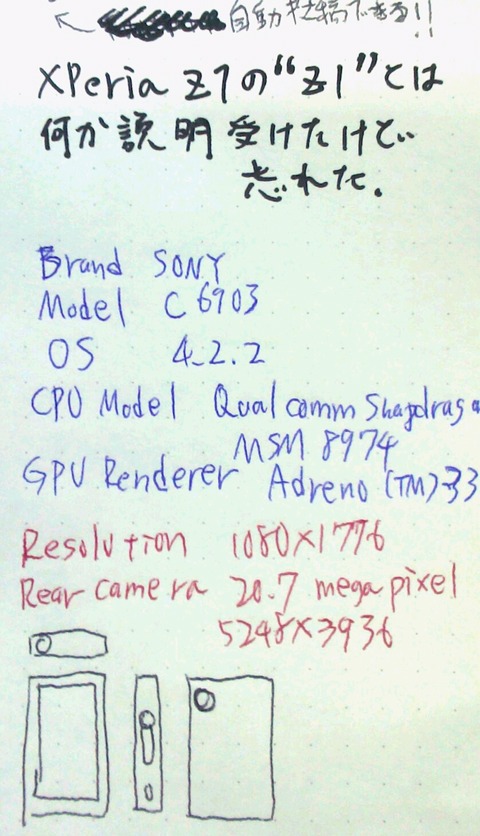 自動投稿できる!!
XPeria Z1の"Z1"とは
何か説明受けたけど
忘れた.
Brand SONY
Model C6903
OS 4.2.2
CPU Model Qualcomm Snapdrago
MSM 8974
GPU Renderer Adreno (TM) 33
Resolution 1080×1776
Rear camera 20.7 mega pixel
5248×3936